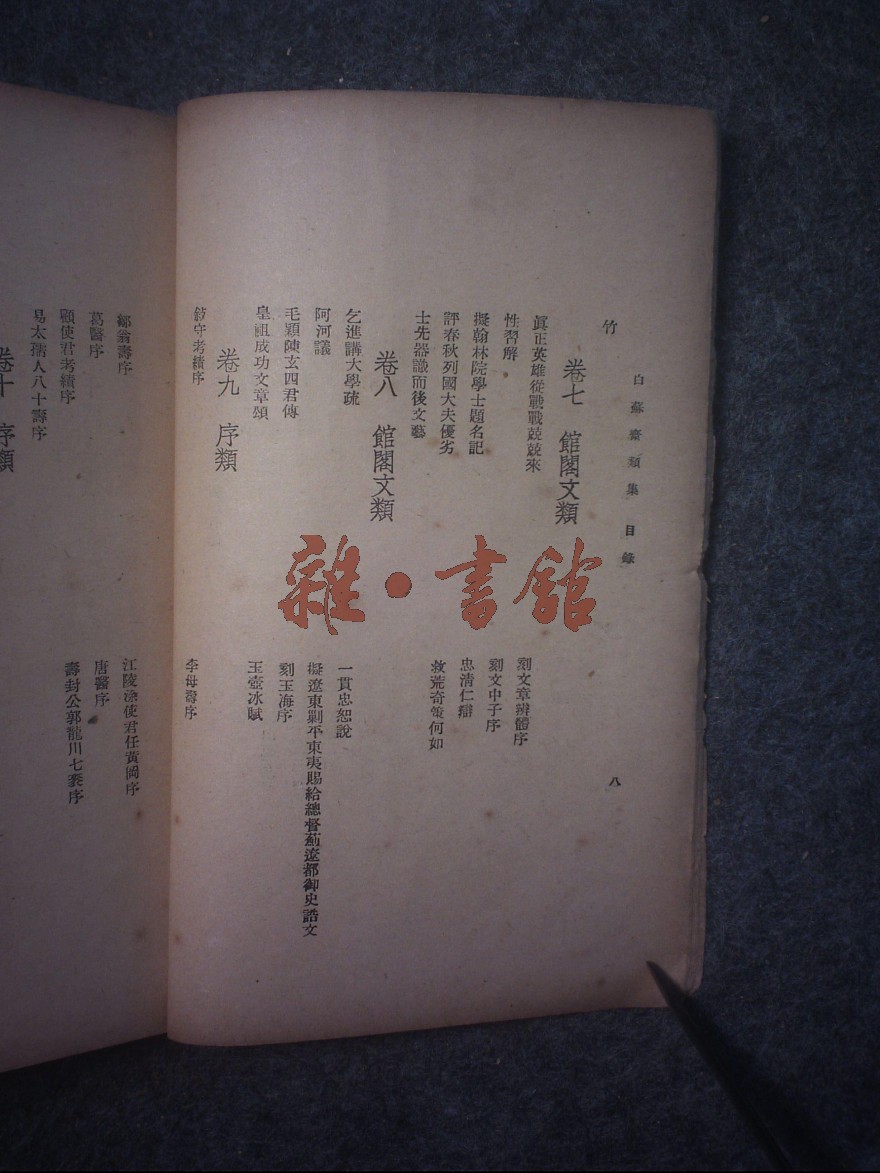 白蘇齋類集 目錄
八
竹
卷七 館閣文類
眞正英雄從戰戰兢兢來
刻文章辨體序
性習解
刻文中子序
擬翰林院學士題名記
忠清仁辯
評春秋列國大夫優劣
救荒奇策何如
士先器識而後文藝
卷八 館閣文類
乞進講大學疏
一貫忠恕說
阿河議
擬遼東剿平東夷賜給總督薊遼都御史誥文
毛穎陳玄四君傳
刻玉海序
皇祖成功文章頌
玉壺冰賦
卷九 序類
敍守考績序
李母壽序
鄒翁壽序
江陵涂使君任黃岡序
葛醫序
唐醫序
顧使君考績序
壽封公郭龍川七袠序
易太孺人八十壽序
卷十 序類
雜·書館